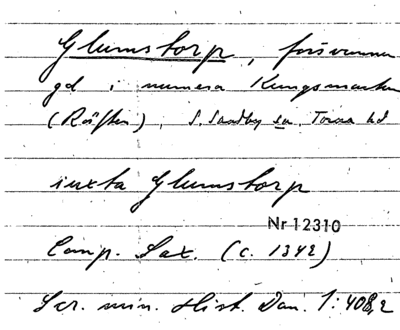 Glumstorp, försvunnen
gd i numera Kungsmarken
(Räften), S. Sandby sn, Torna hd
iuxta Glumstorp
Nr 12310
Comp. Sax. (c. 1342)
Scr. min. Hist. Dan. 1:408,2